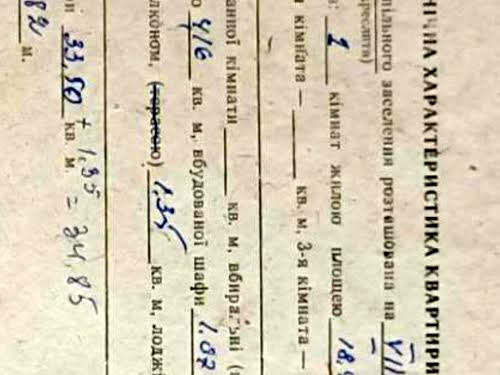 НІЧНА ХАРАКТЕРИСТИКА КВАРТИРИ
пільного заселення розташована на VII
реслити)
а: 1 кімнат жилою площею 18,
я кімната — кв. м, 3-я кімната —
анної кімнати кв. м, вбиральні (
о кв. м, вбудованої шафи 1.87
лконом, (терасою) 1,35 кв. м, лоджі
33,50 + 1,35 = 34,85
кв. м.
82 м.